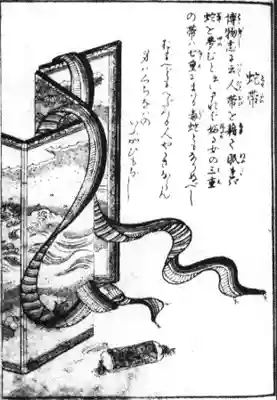 蛇帯
博物志に云人帯を藉て眠れば
蛇を夢むと云々されば妬る女の三重
の帯は七重にまはる毒蛇ともなりぬべし
おもへどもへだつる人やかきならん
身はくちなはの
いふかひもなし